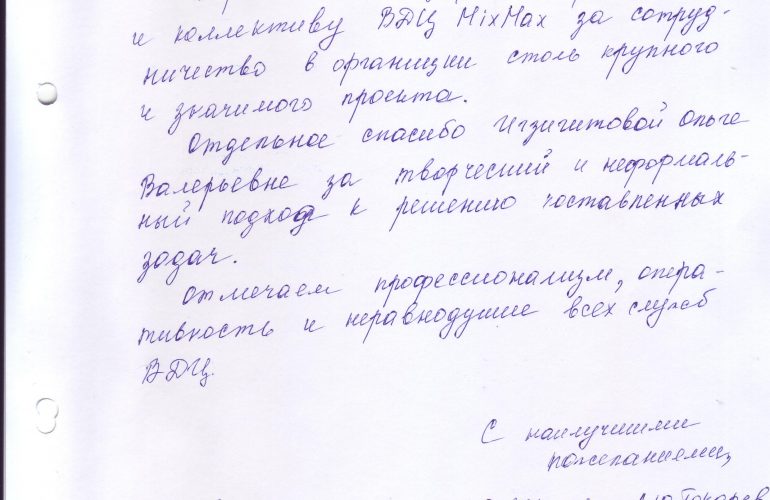 и коллективу ВДЦ MixMax за сотруд-
ничество в органиции столь крупного
и значимого проекта.
Отдельное спасибо Игзигитовой Ольге
Валерьевне за творческий и неформаль-
ный подход к решению поставленных
задач.
Отмечаем профессионализм, опера-
тивность и неравнодушие всех служб
ВДЦ.
С наилучшими
пожеланиями,